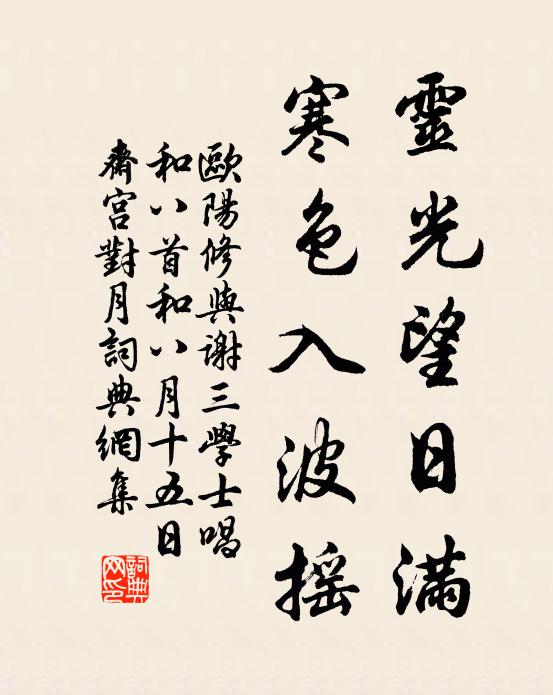 靈光望日滿
寒色入波摇
歐陽修與謝三學士唱
和八首和八月十五日
齋宮對月詞典網集
詞典
网印